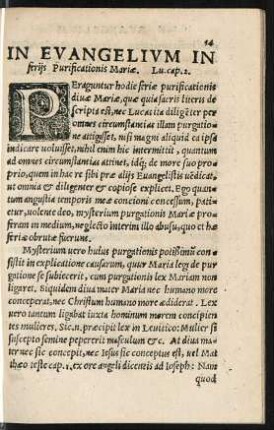 14
IN EVANGELIVM IN
ferijs Purificationis Mariæ. Lu. cap. 2.
PEraguntur hodie feriæ purificationis
diuæ Mariæ, quæ quia sacris literis de
scripta est, nec Lucas ita diligēter per
omnes circumstantias illam purgatio
ne attigisset, nisi magni aliquid ea ipsa
indicare uoluisset, nihil enim hic intermittit, quantum
ad omnes circumstantias attinet, idq; de more suo pro
prio, quem in hac re sibi præ alijs Euangelistis uēdicat,
ut omnia & diligenter & copiose explicet. Ego quan
tum angustia temporis meæ concioni concessum, patie
tur, uolente deo, mysterium purgationis Mariæ profe
ram in medium, neglecto interim illo abusu, quo et hæ
feriæ obrutæ fuerunt.
Mysterium uero huius purgationis potissimū con
sistit in explicatione causarum, quar Maria lege de pur
gatione se subiecerit, cum purgationis lex Mariam non
ligaret. Siquidem diua mater Maria nec humano more
conceperat, nec Christum humano more ædiderat. Lex
uero tantum ligabat iuxta hominum morem concipien
tes mulieres, Sic. n. præcipit lex in Leuitico: Mulier si
suscepto semine pepererit masculum & c. At diua ma-
ter nec sic concepit, nec Iesus sic conceptus est, uel Mat
thæo teste cap. 1, ex ore angeli dicentis ad Ioseph: Nam
quod